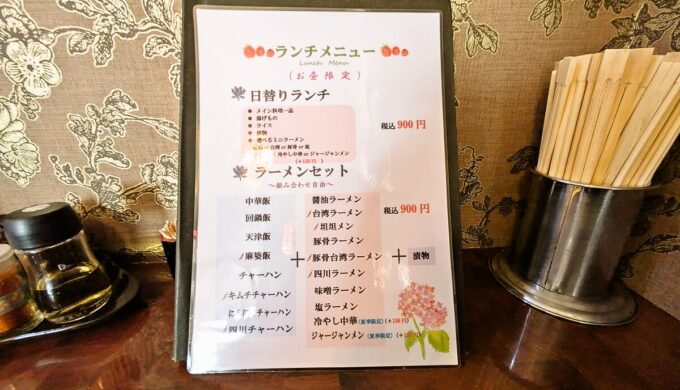 ランチメニュー
Lunch Menu
(お昼限定)
日替りランチ
メイン料理一品
揚げもの
ライス
漬物
選べるミニラーメン
台湾 or 豚骨 or 塩
冷やし中華 or ジャージャンメン
(+150円)
税込 900円
ラーメンセット
～組み合わせ自由～
中華飯
回鍋飯
天津飯
麻婆飯
チャーハン
キムチチャーハン
チャーハン
四川チャーハン
+
醤油ラーメン
台湾ラーメン
坦坦メン
豚骨ラーメン
豚骨台湾ラーメン
四川ラーメン
味噌ラーメン
塩ラーメン
冷やし中華(夏季限定)(+150円)
ジャージャンメン(夏季限定)(+150円)
税込 900円
+
漬物